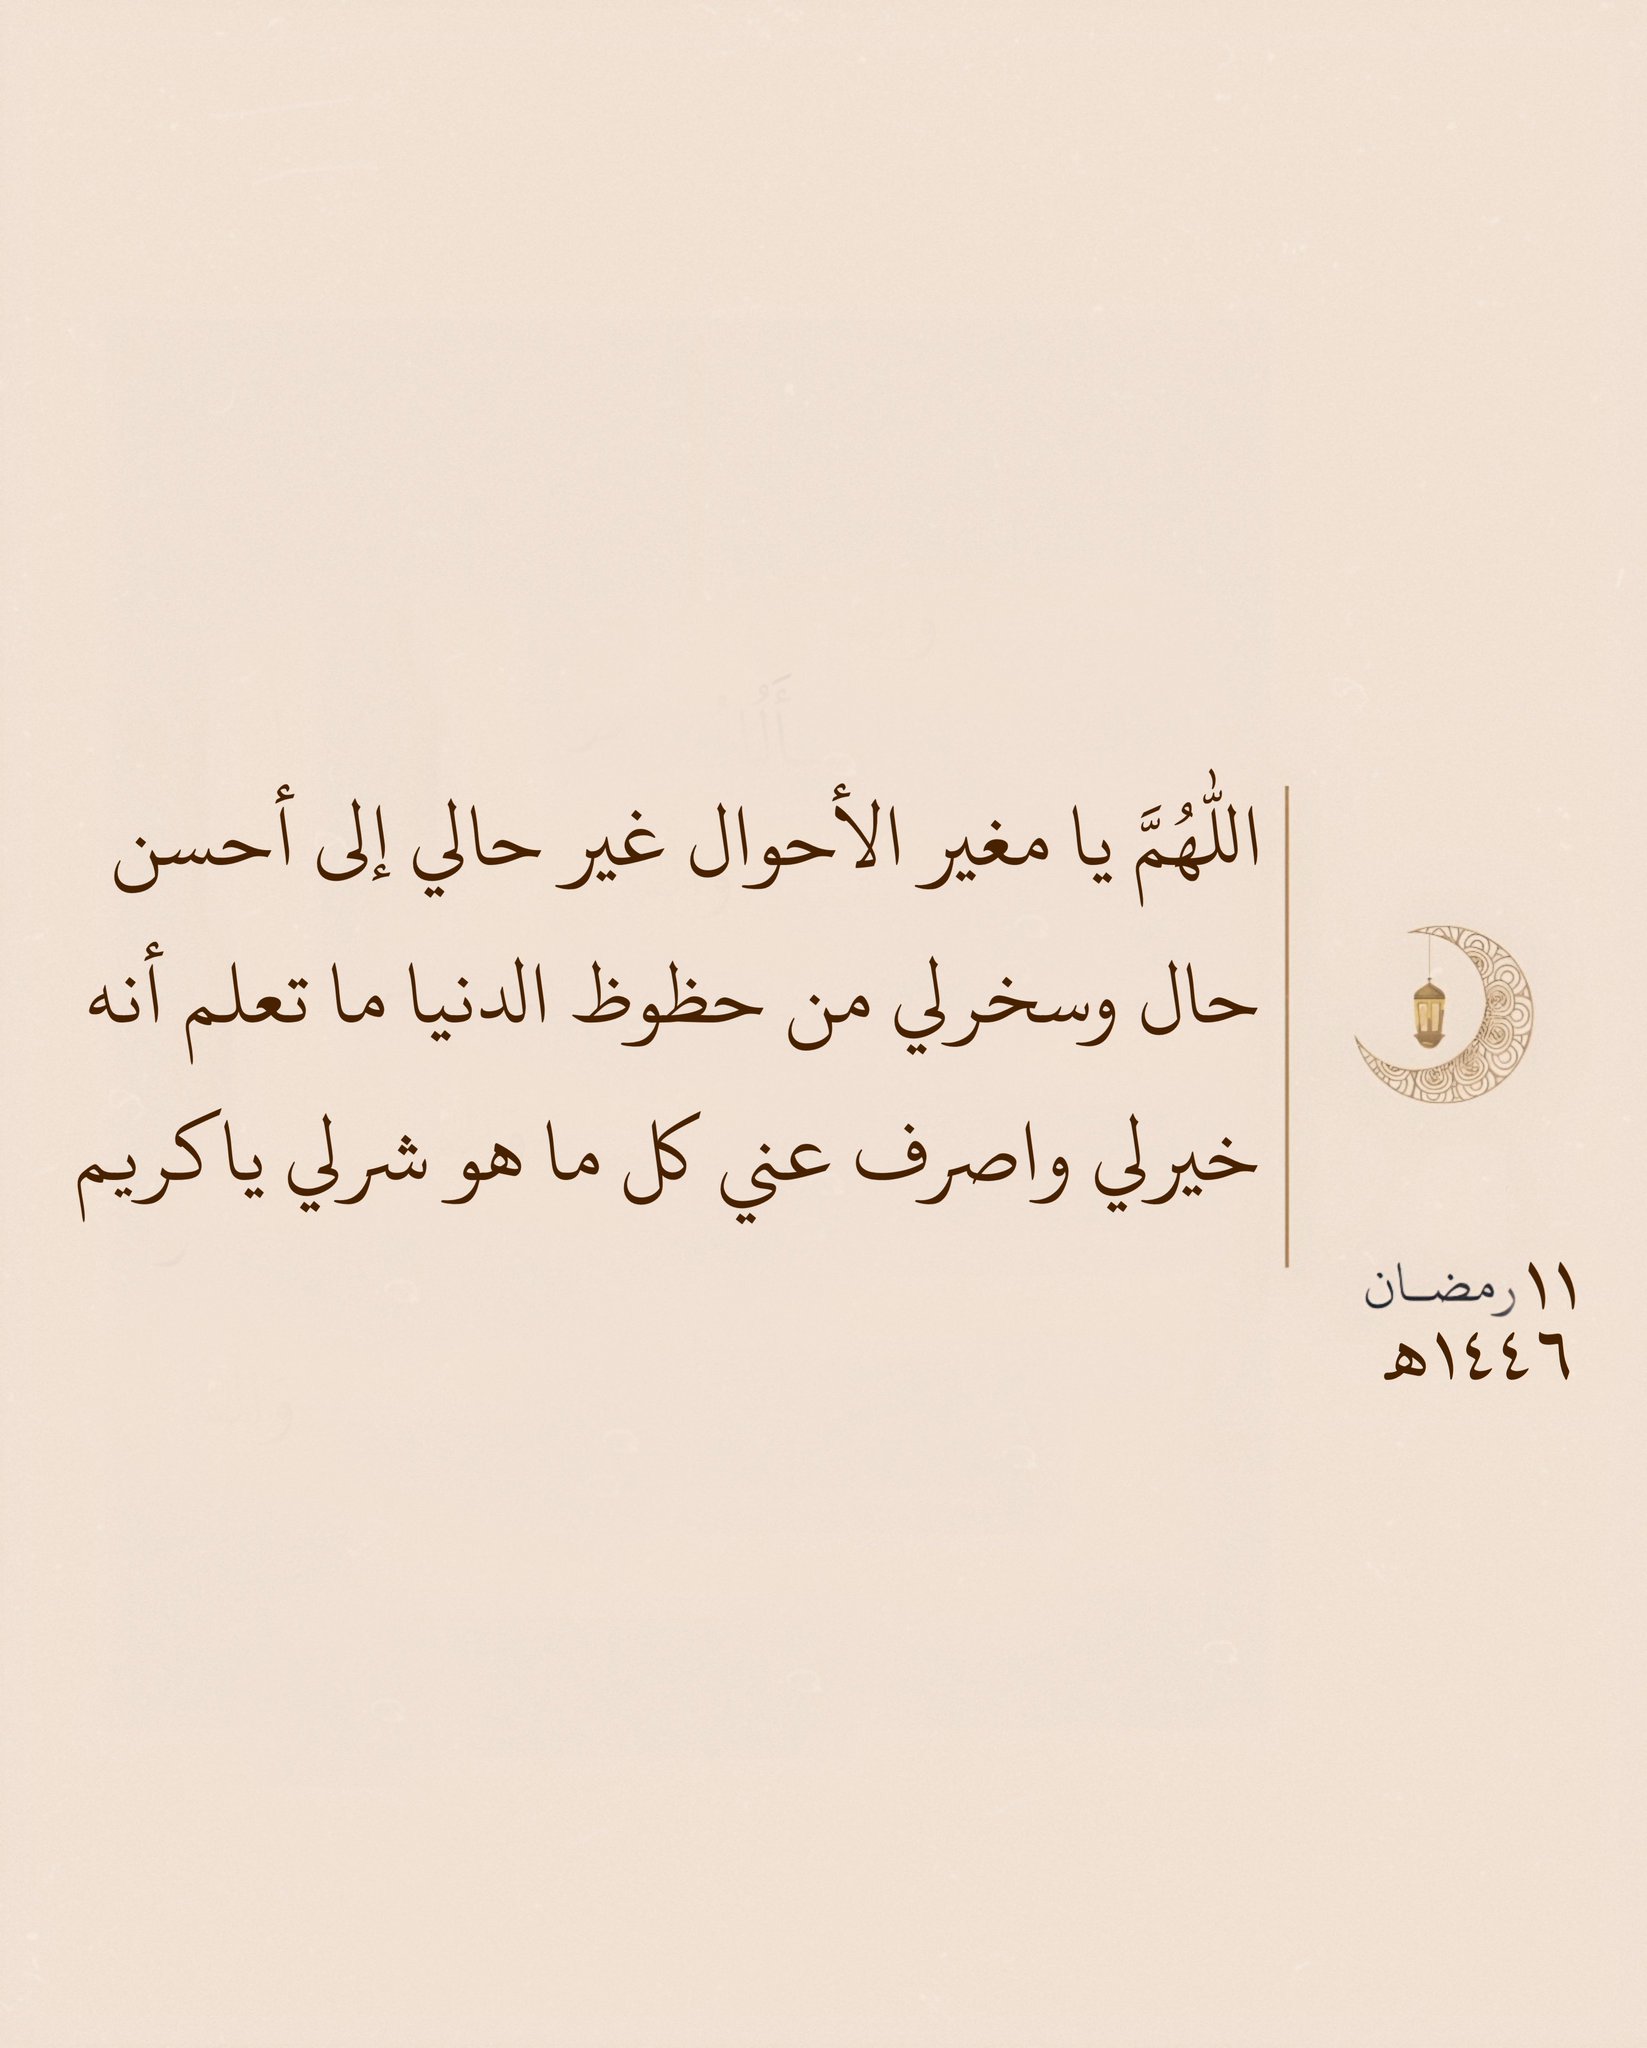 اللّٰهُمَّ يا مغير الأحوال غير حالي إلى أحسن
حال وسخرلي من حظوظ الدنيا ما تعلم أنه
خيرلي واصرف عني كل ما هو شرلي ياكريم
١١ رمضـان
١٤٤٦هـ